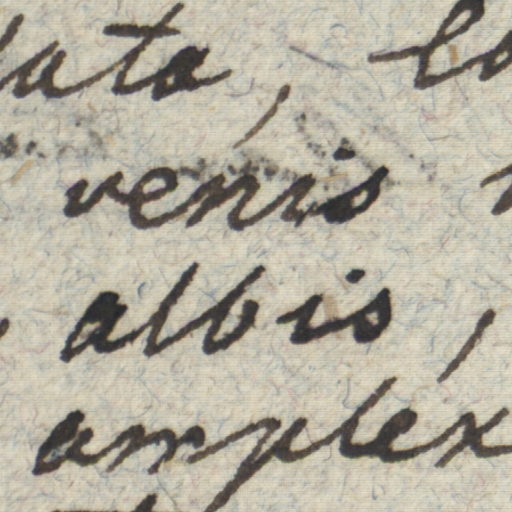 ata, lo
venis
albis,
amplex